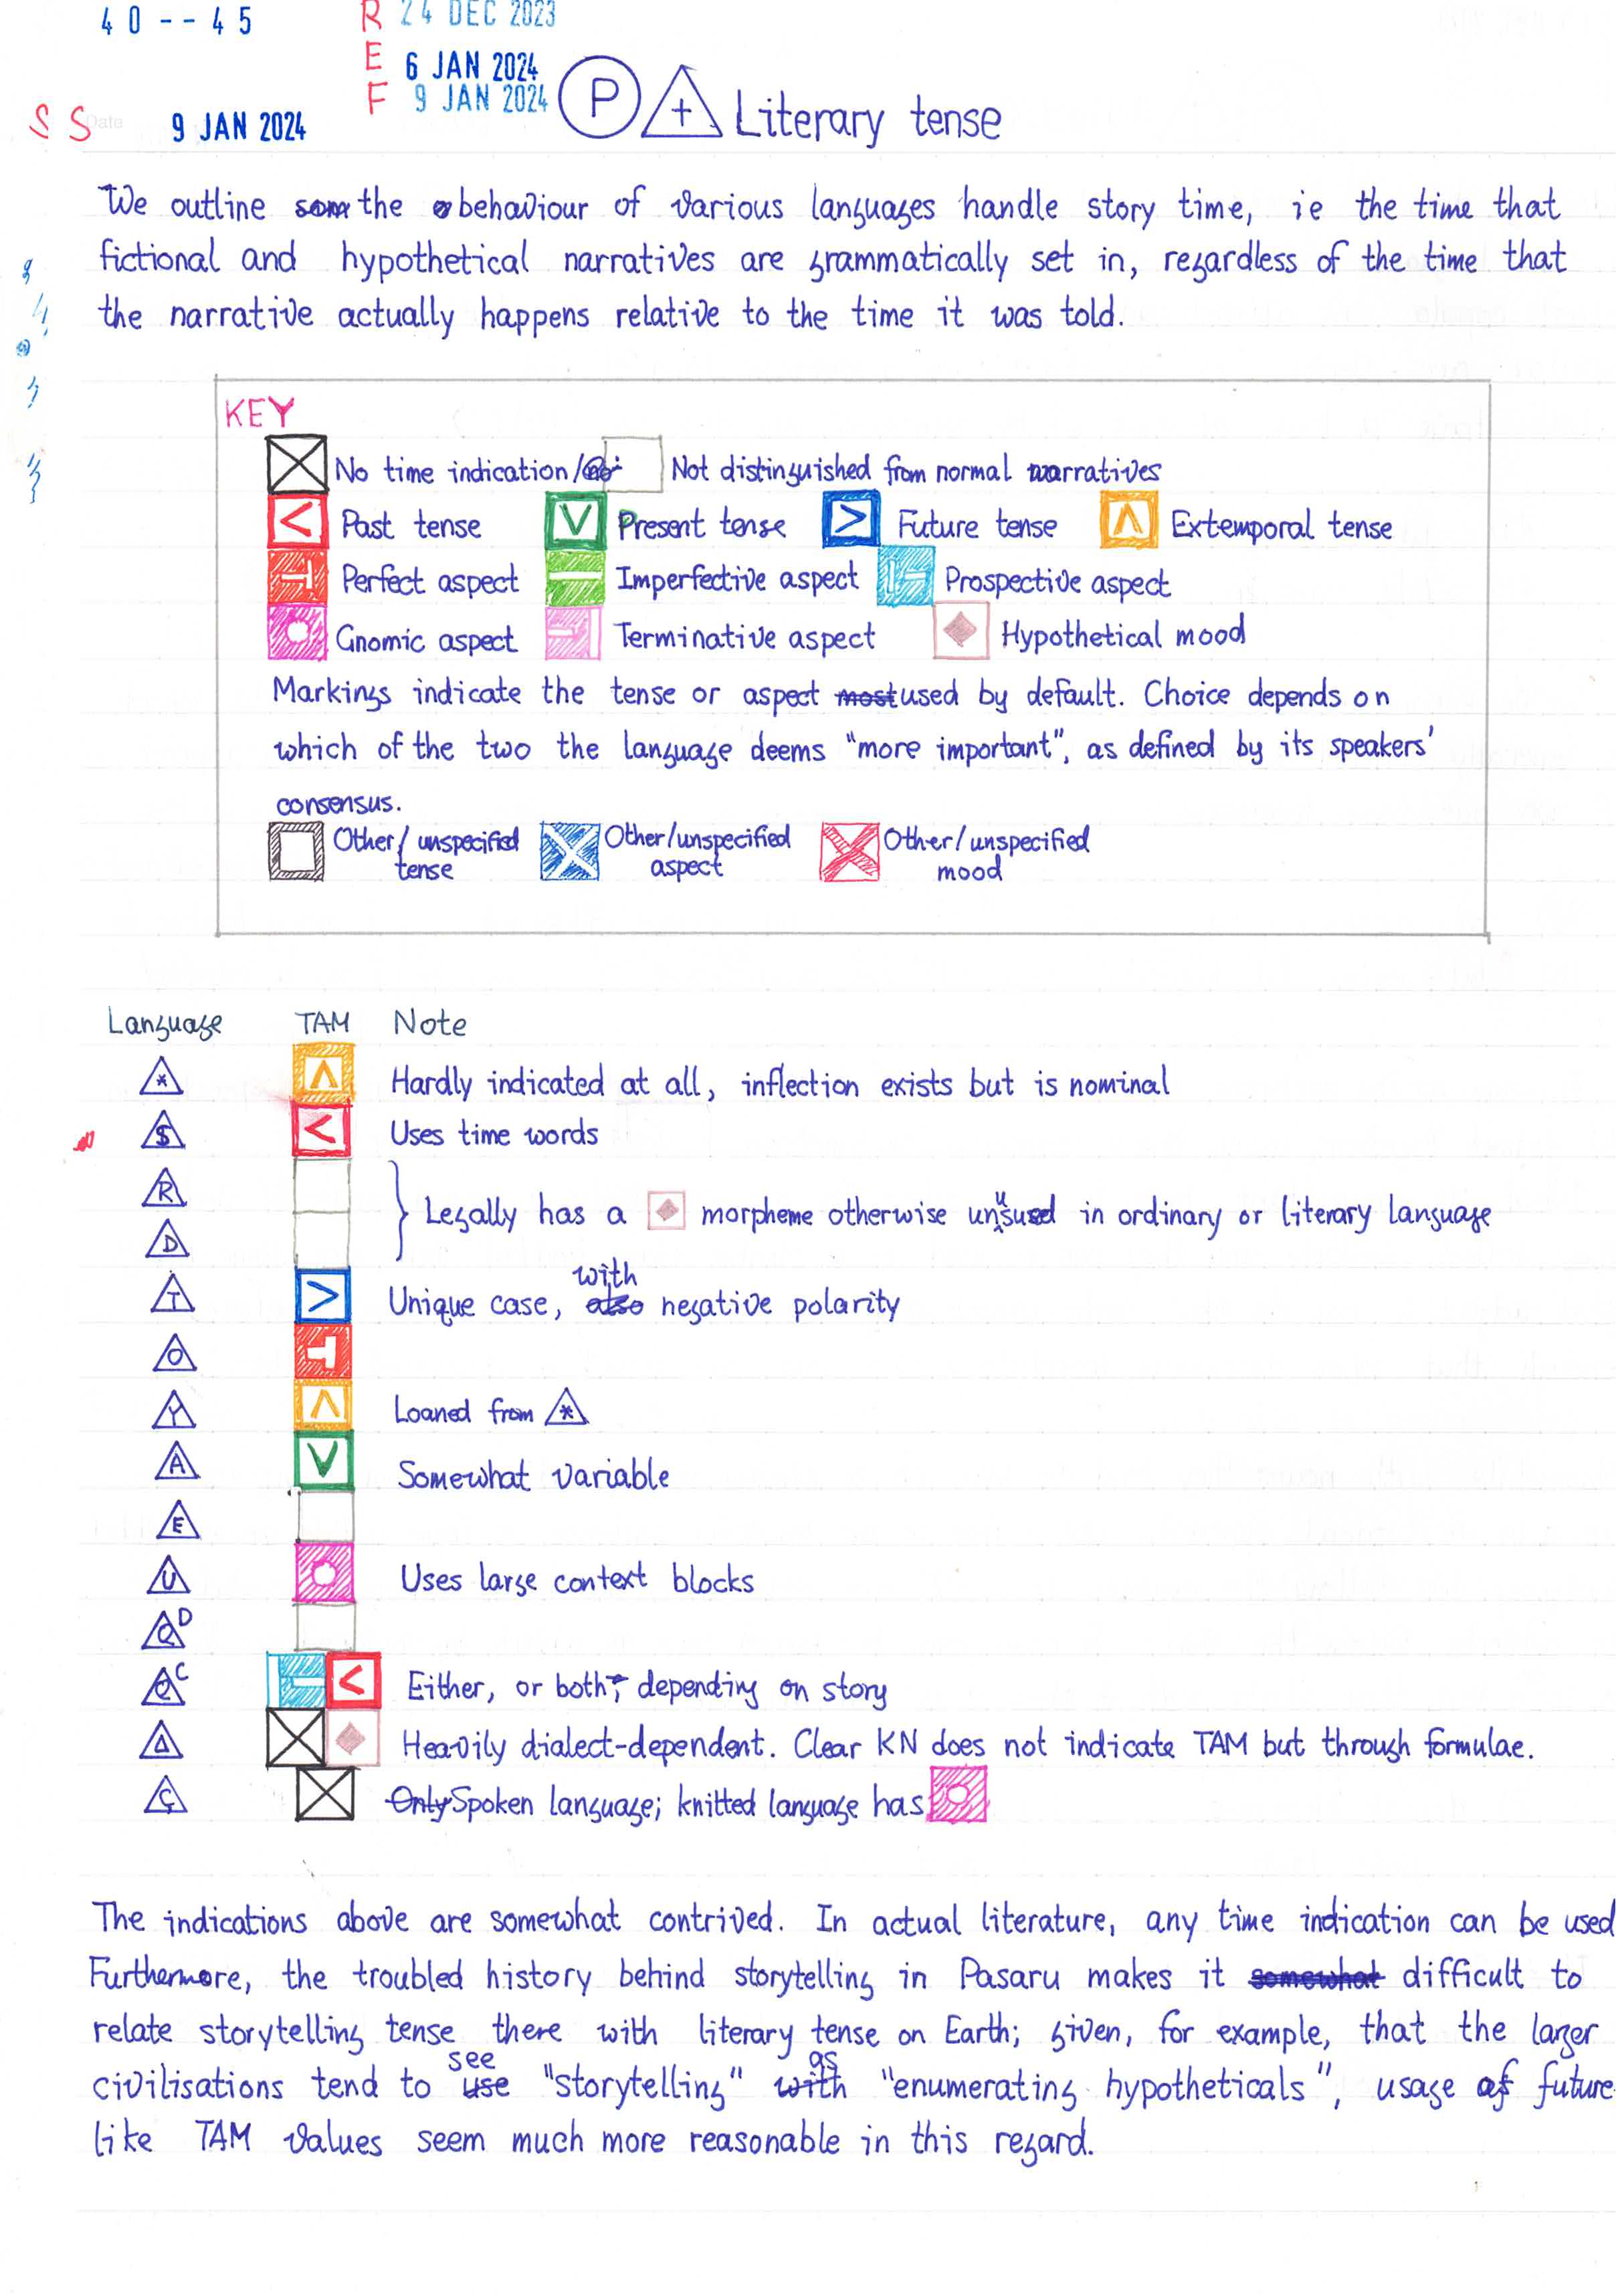 40--45
R 24 DEC 2023
E 6 JAN 2024
F 9 JAN 2024
S S Date 9 JAN 2024
P + Literary tense
We outline som the behaviour of various languages handle story time, ie the time that
fictional and hypothetical narratives are grammatically set in, regardless of the time that
the narrative actually happens relative to the time it was told.
KEY
No time indication/ Not distinguished from normal narratives
< Past tense V Present tense > Future tense Λ Extemporal tense
Perfect aspect Imperfective aspect Prospective aspect
Gnomic aspect Terminative aspect Hypothetical mood
Markings indicate the tense or aspect most used by default. Choice depends on
which of the two the language deems "more important", as defined by its speakers'
consensus.
Other/unspecified tense Other/unspecified aspect Other/unspecified mood
Language TAM Note
* Λ Hardly indicated at all, inflection exists but is nominal
$ < Uses time words
R
Legally has a morpheme otherwise unused in ordinary or literary language
D
T > Unique case, also with negative polarity
O
Y Λ Loaned from *
A V Somewhat variable
E
U Uses large context blocks
Q D
Q C < Either, or both, depending on story
Δ Heavily dialect-dependent. Clear KN does not indicate TAM but through formulae.
Ç Only Spoken language; knitted language has
The indications above are somewhat contrived. In actual literature, any time indication can be used
Furthermore, the troubled history behind storytelling in Pasaru makes it somewhat difficult to
relate storytelling tense there with literary tense on Earth; given, for example, that the larger
civilisations tend to use see "storytelling" with as "enumerating hypotheticals", usage of future
like TAM values seem much more reasonable in this regard.